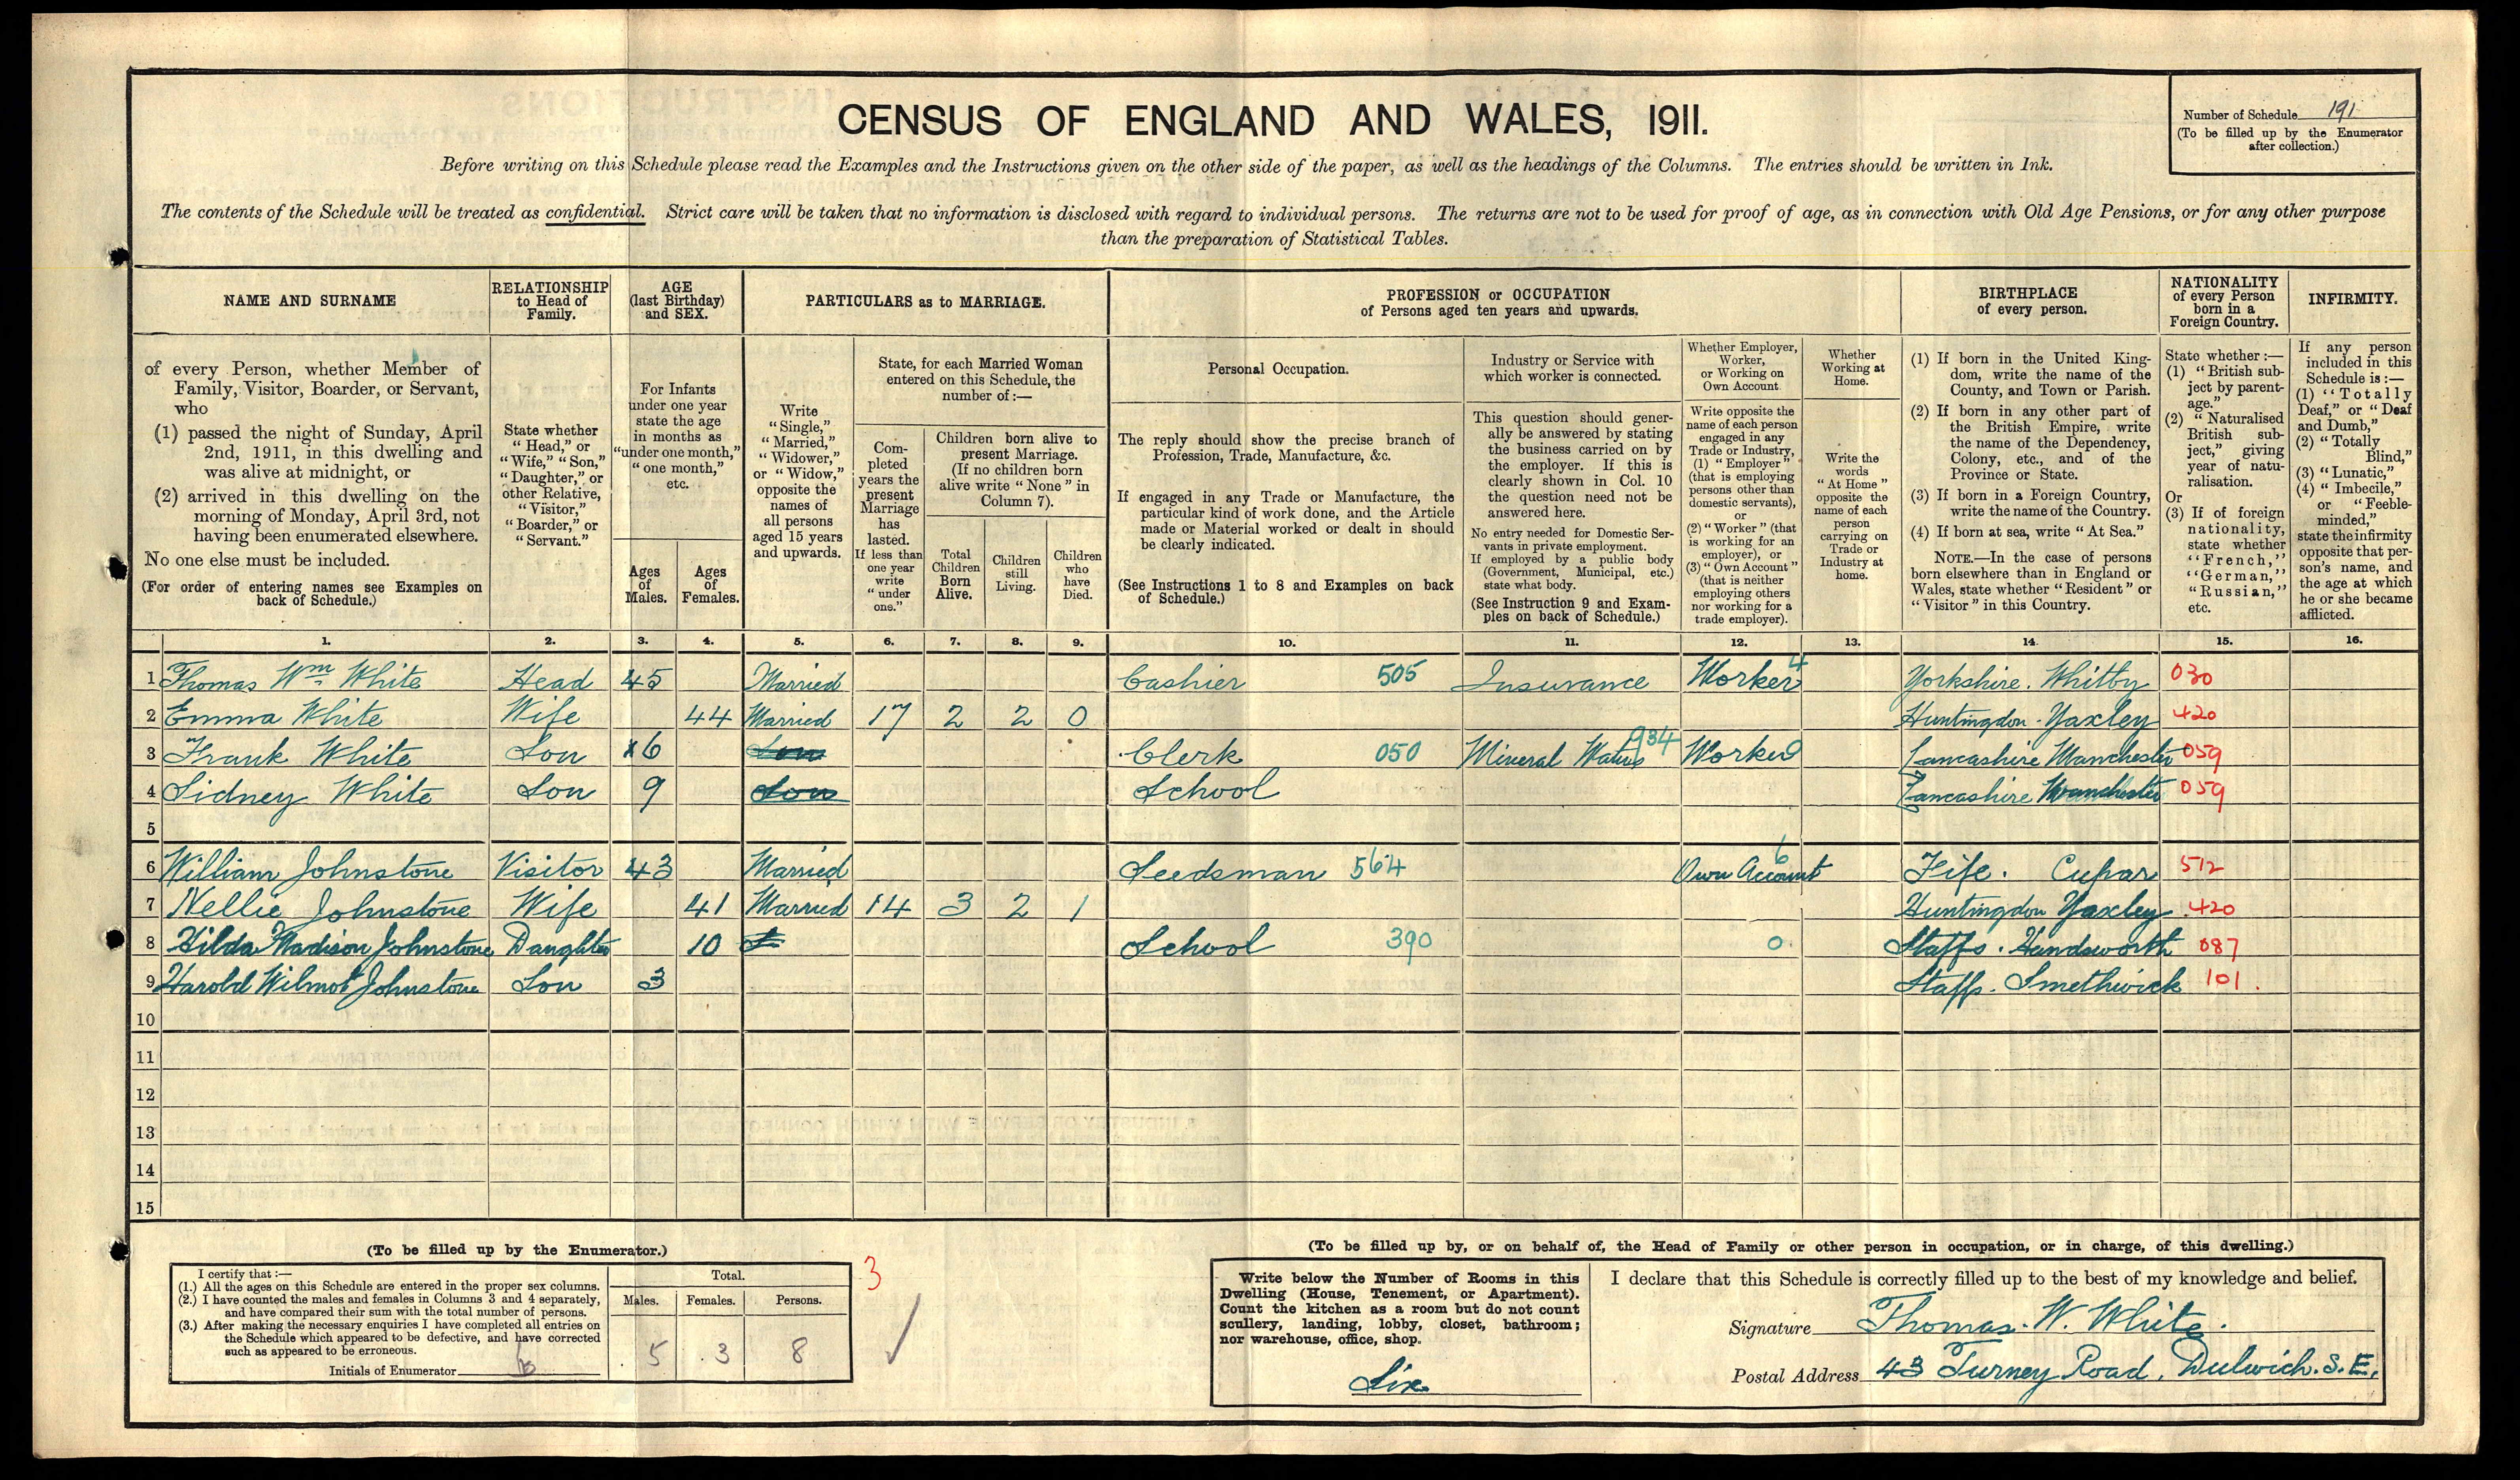 CENSUS OF ENGLAND AND WALES, 1911.
Number of Schedule 191
(To be filled up by the Enumerator
after collection.)
Before writing on this Schedule please read the Examples and the Instructions given on the other side of the paper, as well as the headings of the Columns. The entries should be written in Ink.
The contents of the Schedule will be treated as confidential. Strict care will be taken that no information is disclosed with regard to individual persons. The returns are not to be used for proof of age, as in connection with Old Age Pensions, or for any other purpose
than the preparation of Statistical Tables.
NAME AND SURNAME
of every Person, whether Member of
Family, Visitor, Boarder, or Servant,
who
(1) passed the night of Sunday, April
2nd, 1911, in this dwelling and
was alive at midnight, or
(2) arrived in this dwelling on the
morning of Monday, April 3rd, not
having been enumerated elsewhere.
No one else must be included.
(For order of entering names see Examples on
back of Schedule.)
RELATIONSHIP
to Head of
Family.
State whether
"Head," or
"Wife," "Son,"
"Daughter," or
other Relative,
"Visitor,"
"Boarder," or
"Servant."
AGE
(last Birthday)
and SEX.
For Infants
under one year
state the age
in months as
"under one month,"
"one month,"
etc.
Ages
of
Males.
Ages
of
Females.
PARTICULARS as to MARRIAGE.
Write
"Single,"
"Married,"
"Widower,"
or "Widow,"
opposite the
names of
all persons
aged 15 years
and upwards.
State, for each Married Woman
entered on this Schedule, the
number of:—
Com-
pleted
years the
present
Marriage
has
lasted.
If less than
one year
write
"under
one."
Children born alive to
present Marriage.
(If no children born
alive write "None" in
Column 7).
Total
Children
Born
Alive.
Children
still
Living.
Children
who
have
Died.
PROFESSION or OCCUPATION
of Persons aged ten years and upwards.
Personal Occupation.
The reply should show the precise branch of
Profession, Trade, Manufacture, &c.
If engaged in any Trade or Manufacture, the
particular kind of work done, and the Article
made or Material worked or dealt in should
be clearly indicated.
(See Instructions 1 to 8 and Examples on back
of Schedule.)
Industry or Service with
which worker is connected.
This question should gener-
ally be answered by stating
the business carried on by
the employer. If this is
clearly shown in Col. 10
the question need not be
answered here.
No entry needed for Domestic Ser-
vants in private employment.
If employed by a public body
(Government, Municipal, etc.)
state what body.
(See Instruction 9 and Exam-
ples on back of Schedule.)
Whether Employer,
Worker,
or Working on
Own Account
Write opposite the
name of each person
engaged in any
Trade or Industry,
(1) "Employer"
(that is employing
persons other than
domestic servants),
or
(2) "Worker" (that
is working for an
employer), or
(3) "Own Account"
(that is neither
employing others
nor working for a
trade employer).
Whether
Working at
Home.
Write the
words
"At Home"
opposite the
name of each
person
carrying on
Trade or
Industry at
home.
BIRTHPLACE
of every person.
(1) If born in the United King-
dom, write the name of the
County, and Town or Parish.
(2) If born in any other part of
the British Empire, write
the name of the Dependency,
Colony, etc., and of the
Province or State.
(3) If born in a Foreign Country,
write the name of the Country.
(4) If born at sea, write "At Sea."
NOTE.—In the case of persons
born elsewhere than in England or
Wales, state whether "Resident" or
"Visitor" in this Country.
NATIONALITY
of every Person
born in a
Foreign Country.
State whether:—
(1) "British sub-
ject by parent-
age."
(2) "Naturalised
British sub-
ject," giving
year of natu-
ralisation.
Or
(3) If of foreign
nationality,
state whether
"French,"
"German,"
"Russian,"
etc.
INFIRMITY.
If any person
included in this
Schedule is:—
(1) "Totally
Deaf," or "Deaf
and Dumb,"
(2) "Totally
Blind,"
(3) "Lunatic,"
(4) "Imbecile,"
or "Feeble-
minded,"
state the infirmity
opposite that per-
son's name, and
the age at which
he or she became
afflicted.
1. 2. 3. 4. 5. 6. 7. 8. 9. 10. 11. 12. 13. 14. 15. 16.
1 Thomas Wm White Head 45 Married Cashier 505 Insurance Worker 4 Yorkshire. Whitby 030
2 Emma White Wife 44 Married 17 2 2 0 Huntingdon - Yaxley 420
3 Frank White Son 16 Son Clerk 050 Mineral Waters 934 Worker Lancashire Manchester 059
4 Sidney White Son 9 Son School Lancashire Manchester 059
5
6 William Johnstone Visitor 43 Married Seedsman 564 Own Account 6 Fife. Cupar 512
7 Nellie Johnstone Wife 41 Married 14 3 2 1 Huntingdon Yaxley 420
8 Hilda Madison Johnstone Daughter 10 School 390 0 Staffs. Handsworth 087
9 Harold Wilmot Johnstone Son 3 Staffs. Smethwick 101.
10
11
12
13
14
15
(To be filled up by the Enumerator.)
I certify that:—
(1.) All the ages on this Schedule are entered in the proper sex columns.
(2.) I have counted the males and females in Columns 3 and 4 separately,
and have compared their sum with the total number of persons.
(3.) After making the necessary enquiries I have completed all entries on
the Schedule which appeared to be defective, and have corrected
such as appeared to be erroneous.
Initials of Enumerator
Total.
Males. Females. Persons.
5 3 8
3
(To be filled up by, or on behalf of, the Head of Family or other person in occupation, or in charge, of this dwelling.)
Write below the Number of Rooms in this
Dwelling (House, Tenement, or Apartment).
Count the kitchen as a room but do not count
scullery, landing, lobby, closet, bathroom;
nor warehouse, office, shop.
Six
I declare that this Schedule is correctly filled up to the best of my knowledge and belief.
Signature Thomas. W. White.
Postal Address 43 Turney Road, Dulwich. S.E.